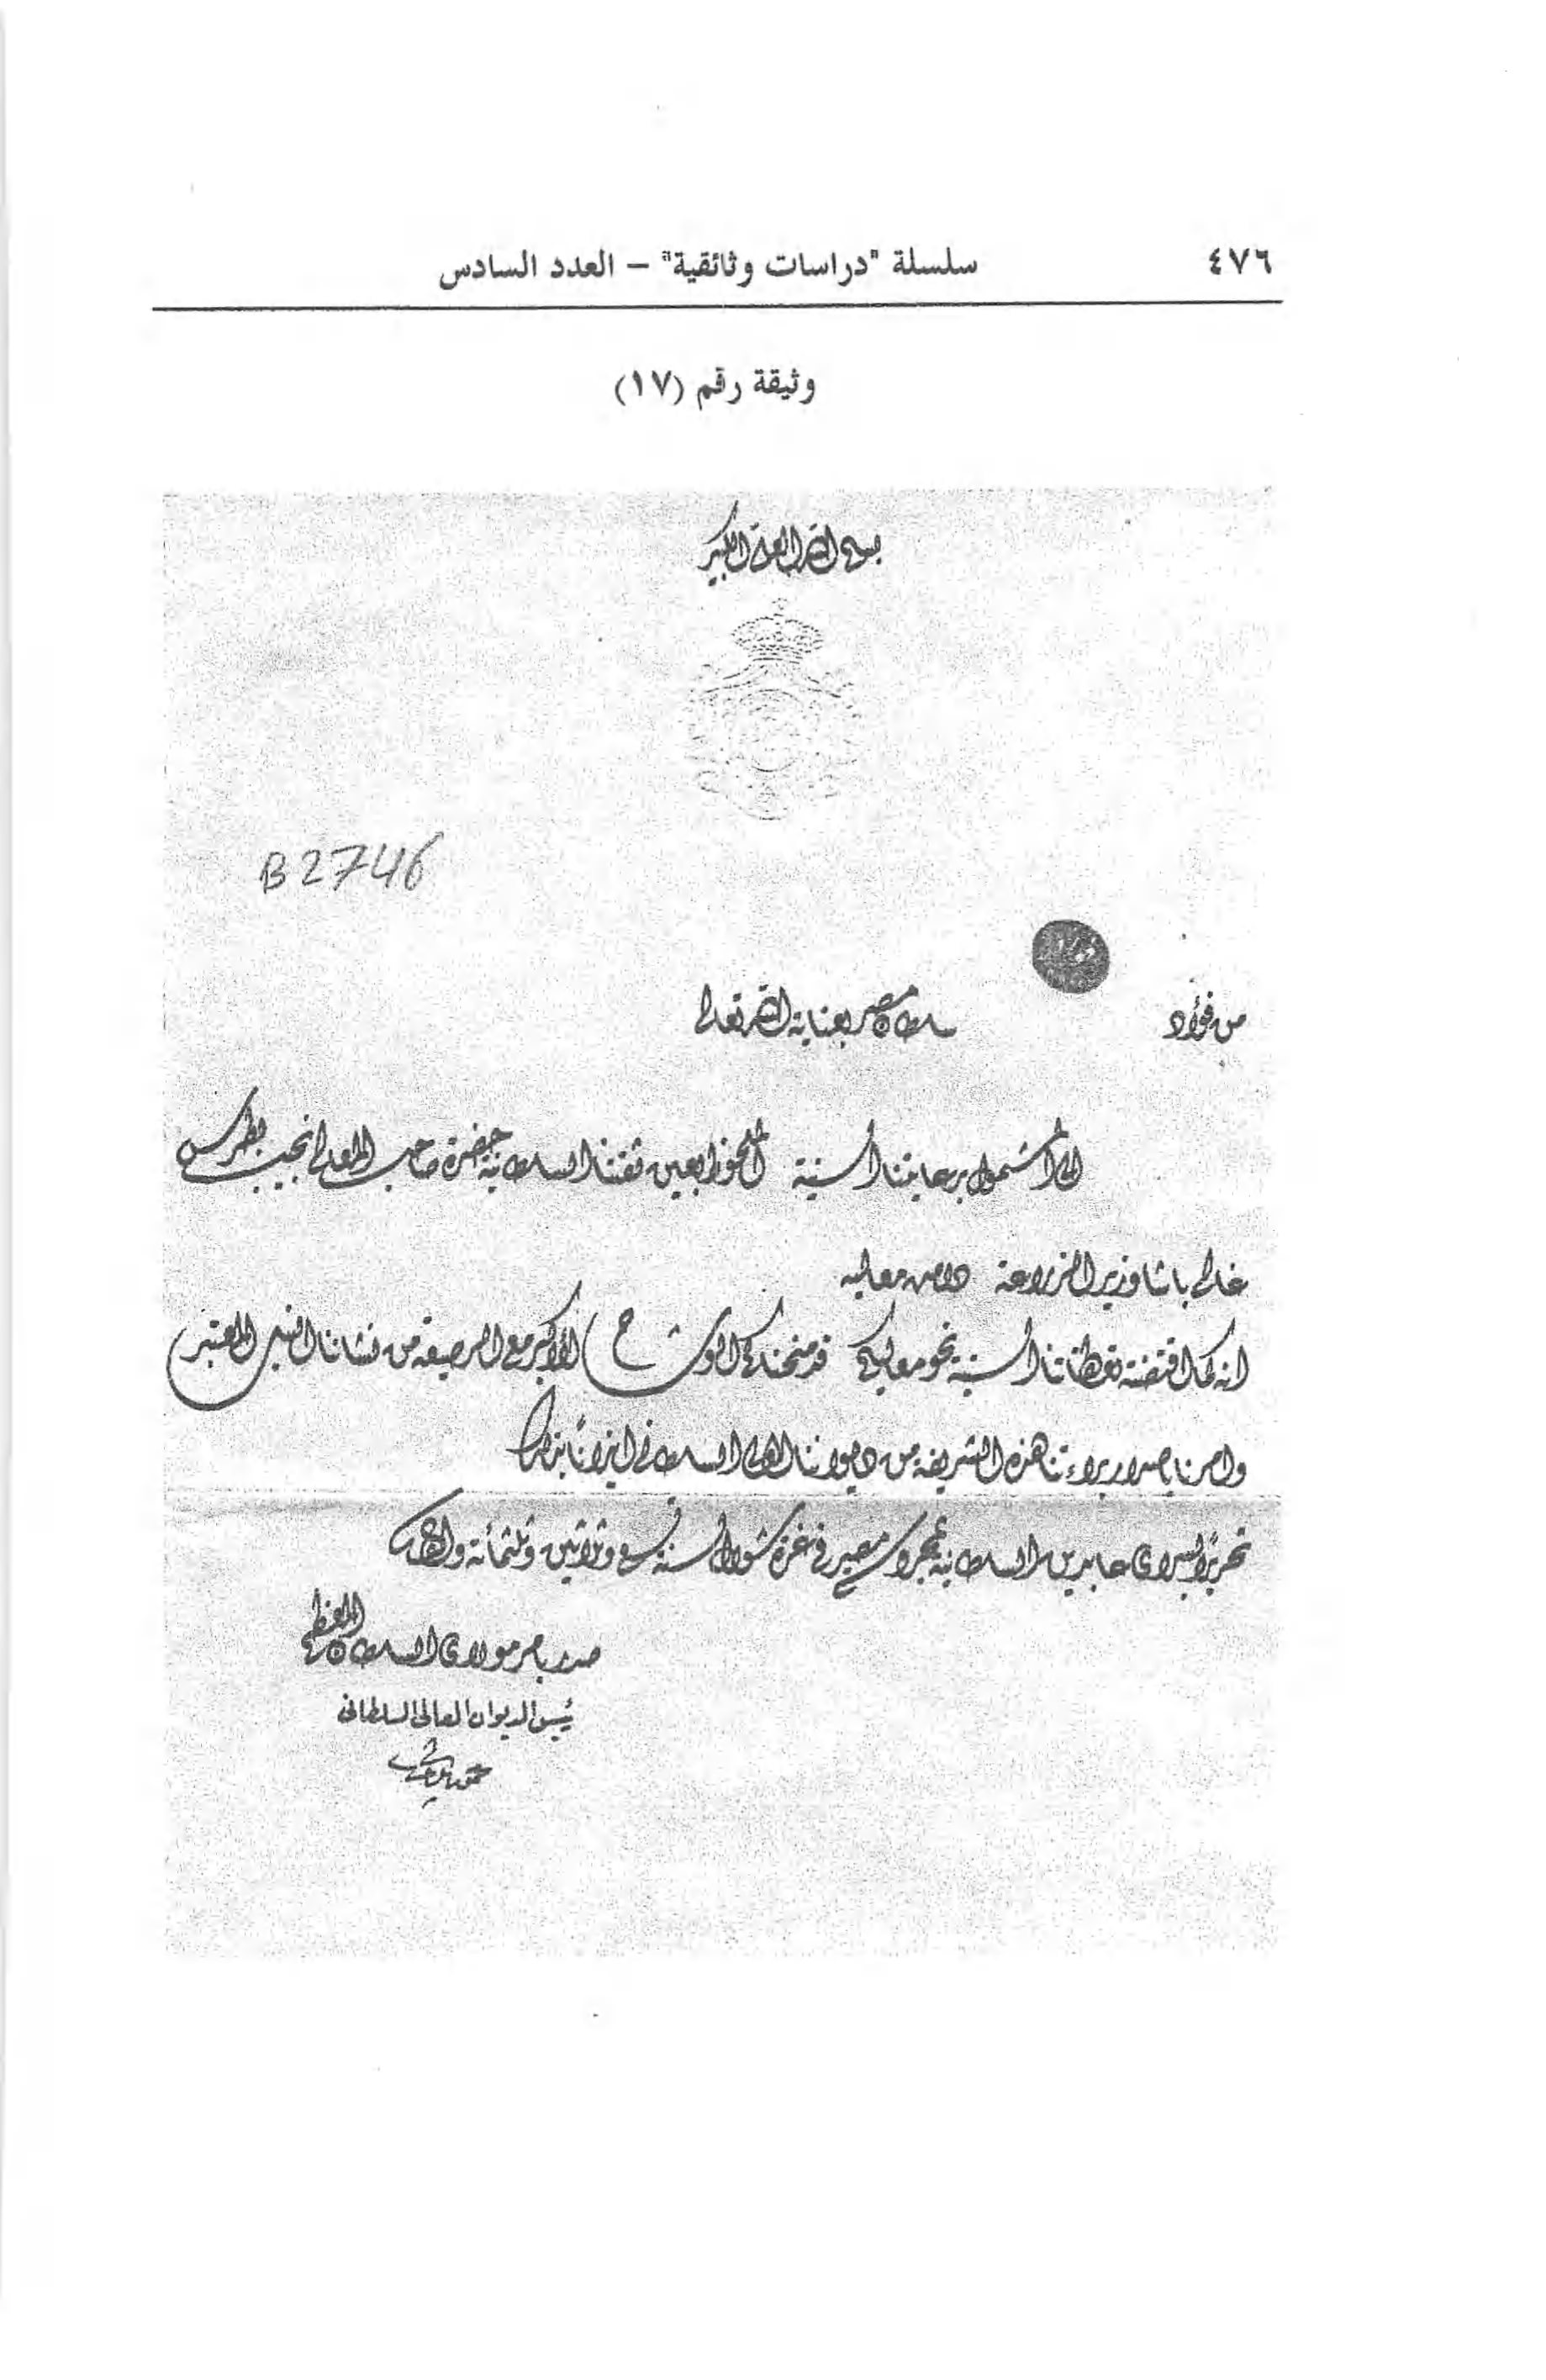 ٤٧٦
سلسلة "دراسات وثائقية" – العدد السادس
وثيقة رقم (١٧)
بعون الله العلى الكبير
B2746
من فؤاد سلطان مصر بعناية الله تعالى
الى المشمول برعايتنا السنية الملحوظ بعين ثقتنا السلطانية حضرة صاحب المعالى نجيب بطرس
غالى باشا وزير الزراعة دامت معاليه
انه لما اقتضته تعطفاتنا السنية نحو معاليكم قد منحناكم الوشاح الأكبر مع المرصيعة من نشاننا النيل المعتبر
وامرنا باصدار براءتنا هذه الشريفة من ديواننا العالى السلطانى ايذانًا بذلك
تحريرًا بسراى عابدين السلطانية بمحروسة مصر فى غرة شوال سنة تسع وثلاثين وثلثمائة والف
صدر بامر مولاى السلطان المعظم
رئيس الديوان العالى السلطانى